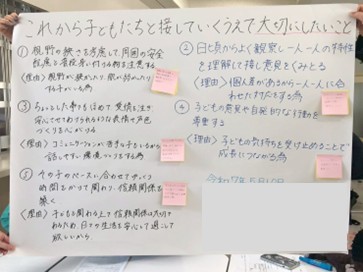 これから子どもたちと接していくうえで大切にしたいこと
① 視野の狭さを考慮して、周囲の安全
配慮と普段身に付ける物を注意する
〈理由〉視野が狭かったり、肌が弱かったり
する子がいる為
② 日ごろからよく観察し一人一人の特性
を理解して接し意見をくみとる
〈理由〉個人差があるから一人一人に合
わせた対応をする為
③ ちょっとした事でもほめて愛情を注ぎ
安心させてあげられるような表情や声色
づくりを心がける
〈理由〉コミュニケーションが苦手な子もいるから
話しやすい環境づくりをする為
④ 子どもの意見や自発的な行動を
尊重する
〈理由〉子どもの気持ちを受け止めることで
成長につながる為
⑤ その子のペースに合わせてゆっくり
時間をかけて関わり、信頼関係を
築く
〈理由〉子どもと関わる上で信頼関係は大切で
あるため、日々の生活を安心して過ごして
欲しいから。